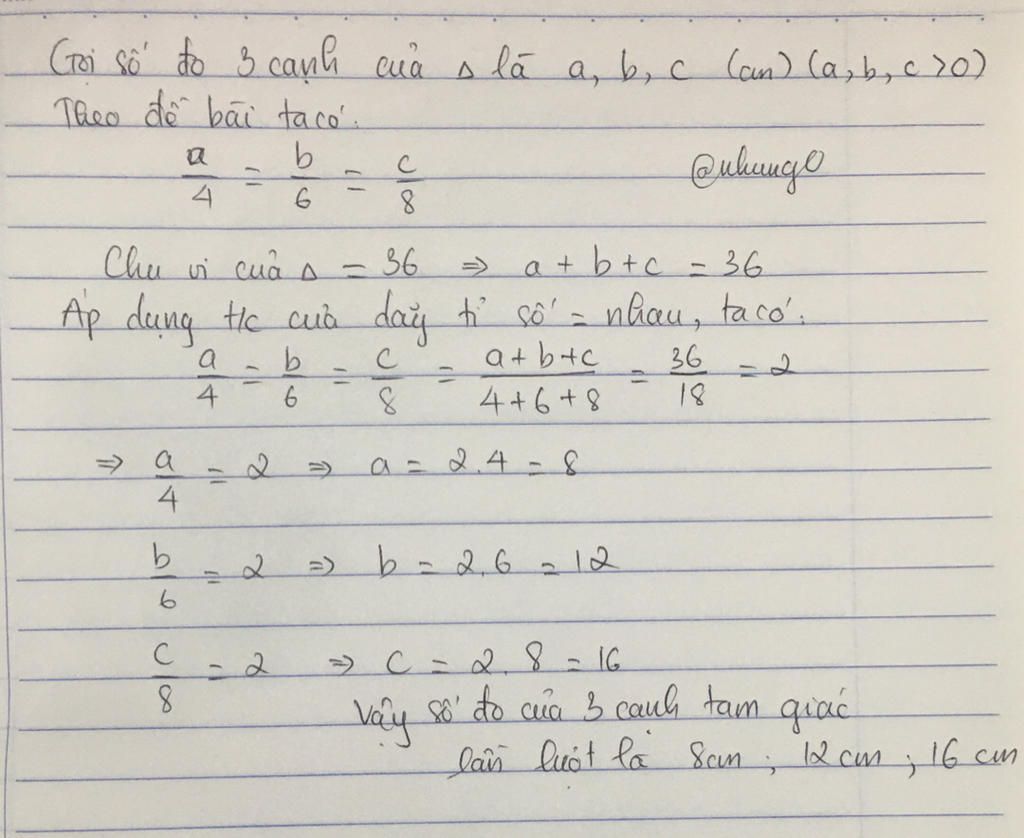 Gọi số đo 3 cạnh của Δ là a, b, c (cm) (a, b, c >0)
Theo đề bài ta có:
a/4 = b/6 = c/8
@nhung0
Chu vi của Δ = 36 ⇒ a + b + c = 36
Áp dụng t/c của dãy tỉ số = nhau, ta có:
a/4 = b/6 = c/8 = (a + b + c)/(4 + 6 + 8) = 36/18 = 2
⇒ a/4 = 2 ⇒ a = 2.4 = 8
b/6 = 2 ⇒ b = 2.6 = 12
c/8 = 2 ⇒ c = 2.8 = 16
Vậy số đo của 3 cạnh tam giác
lần lượt là 8cm ; 12 cm ; 16 cm